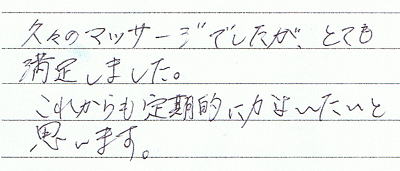 久々のマッサージでしたが、とても
満足しました。
これからも定期的に通いたいと
思います。